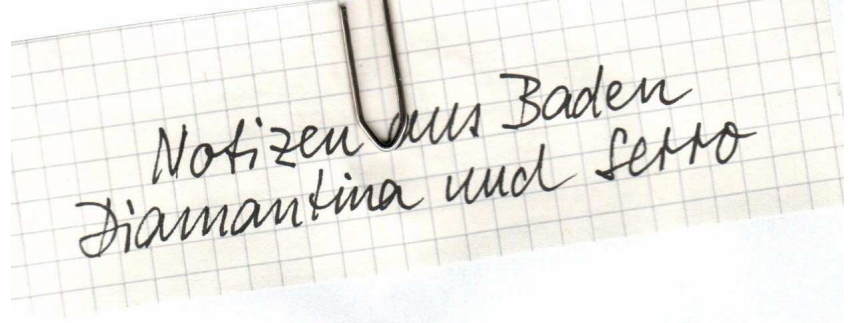 Notizen aus Baden
Diamantina und Serro